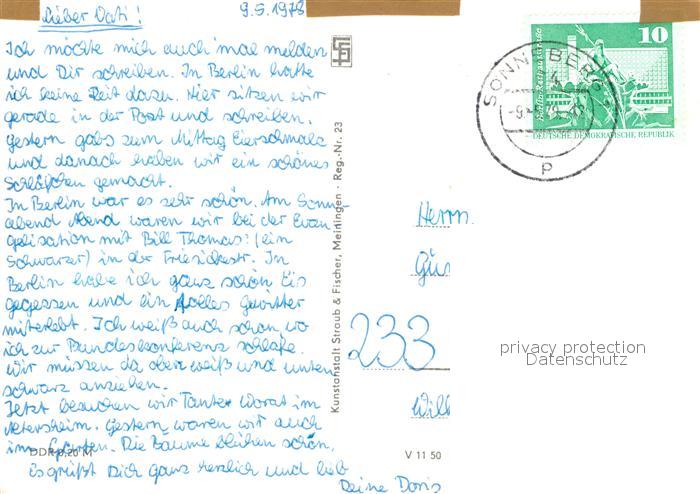 Lieber Vati!
9.5.1978
Ich möchte mich auch mal melden
und Dir schreiben. In Berlin hatte
ich keine Zeit dazu. Hier sitzen wir
gerade in der Post und schreiben.
Gestern gabs zum Mittag Eierschmalz
und danach haben wir ein schönes
Schläfchen gemacht.
In Berlin war es sehr schön. Am Sonn-
abend Abend waren wir bei der Evan
gelisation mit Bill Thomas: (ein
Schwarzer) in der Friesickestr. In
Berlin habe ich ganz schön Eis
gegessen und ein tolles Gewitter
miterlebt. Ich weiß auch schon wo
ich zur Bundeskonferenz schlafe.
Wir müssen da oben weiß und unten
schwarz anziehen.
Jetzt besuchen wir Tante in
Gestern waren wir auch
im Garten. Die Bäume blühen schön.
Es grüßt Dich ganz herzlich und lieb
Deine Doris
DDR 0,20 M
V 11 50
Kunstanstalt Straub & Fischer, Meiningen · Reg.-Nr. 23
SONNEBERG
P
10
Berlin-Rathausstraße
DEUTSCHE DEMOKRATISCHE REPUBLIK
Herrn
233
privacy protection
Datenschutz